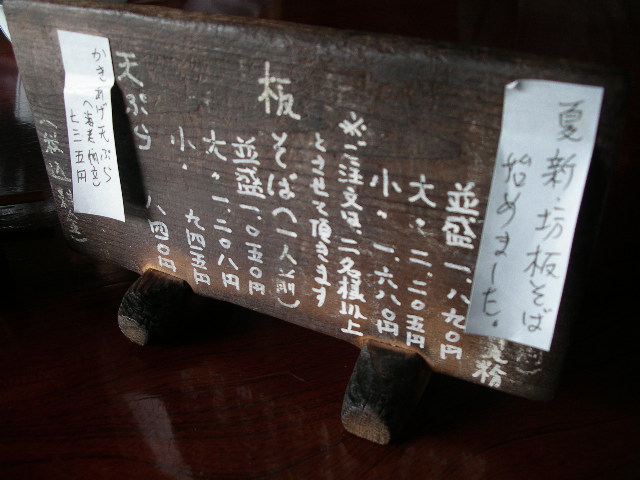 夏新・坊板そば
始めました。
並盛 一、八九〇円
大・二、二〇五円
小・一、六八〇円
※ご注文は、二名様以上
とさせて頂きます
板そば(一人前)
並盛 一、〇五〇円
大・一、二〇八円
小・九四五円
天ぷら 八四〇円
かきあげ天ぷら
七三五円